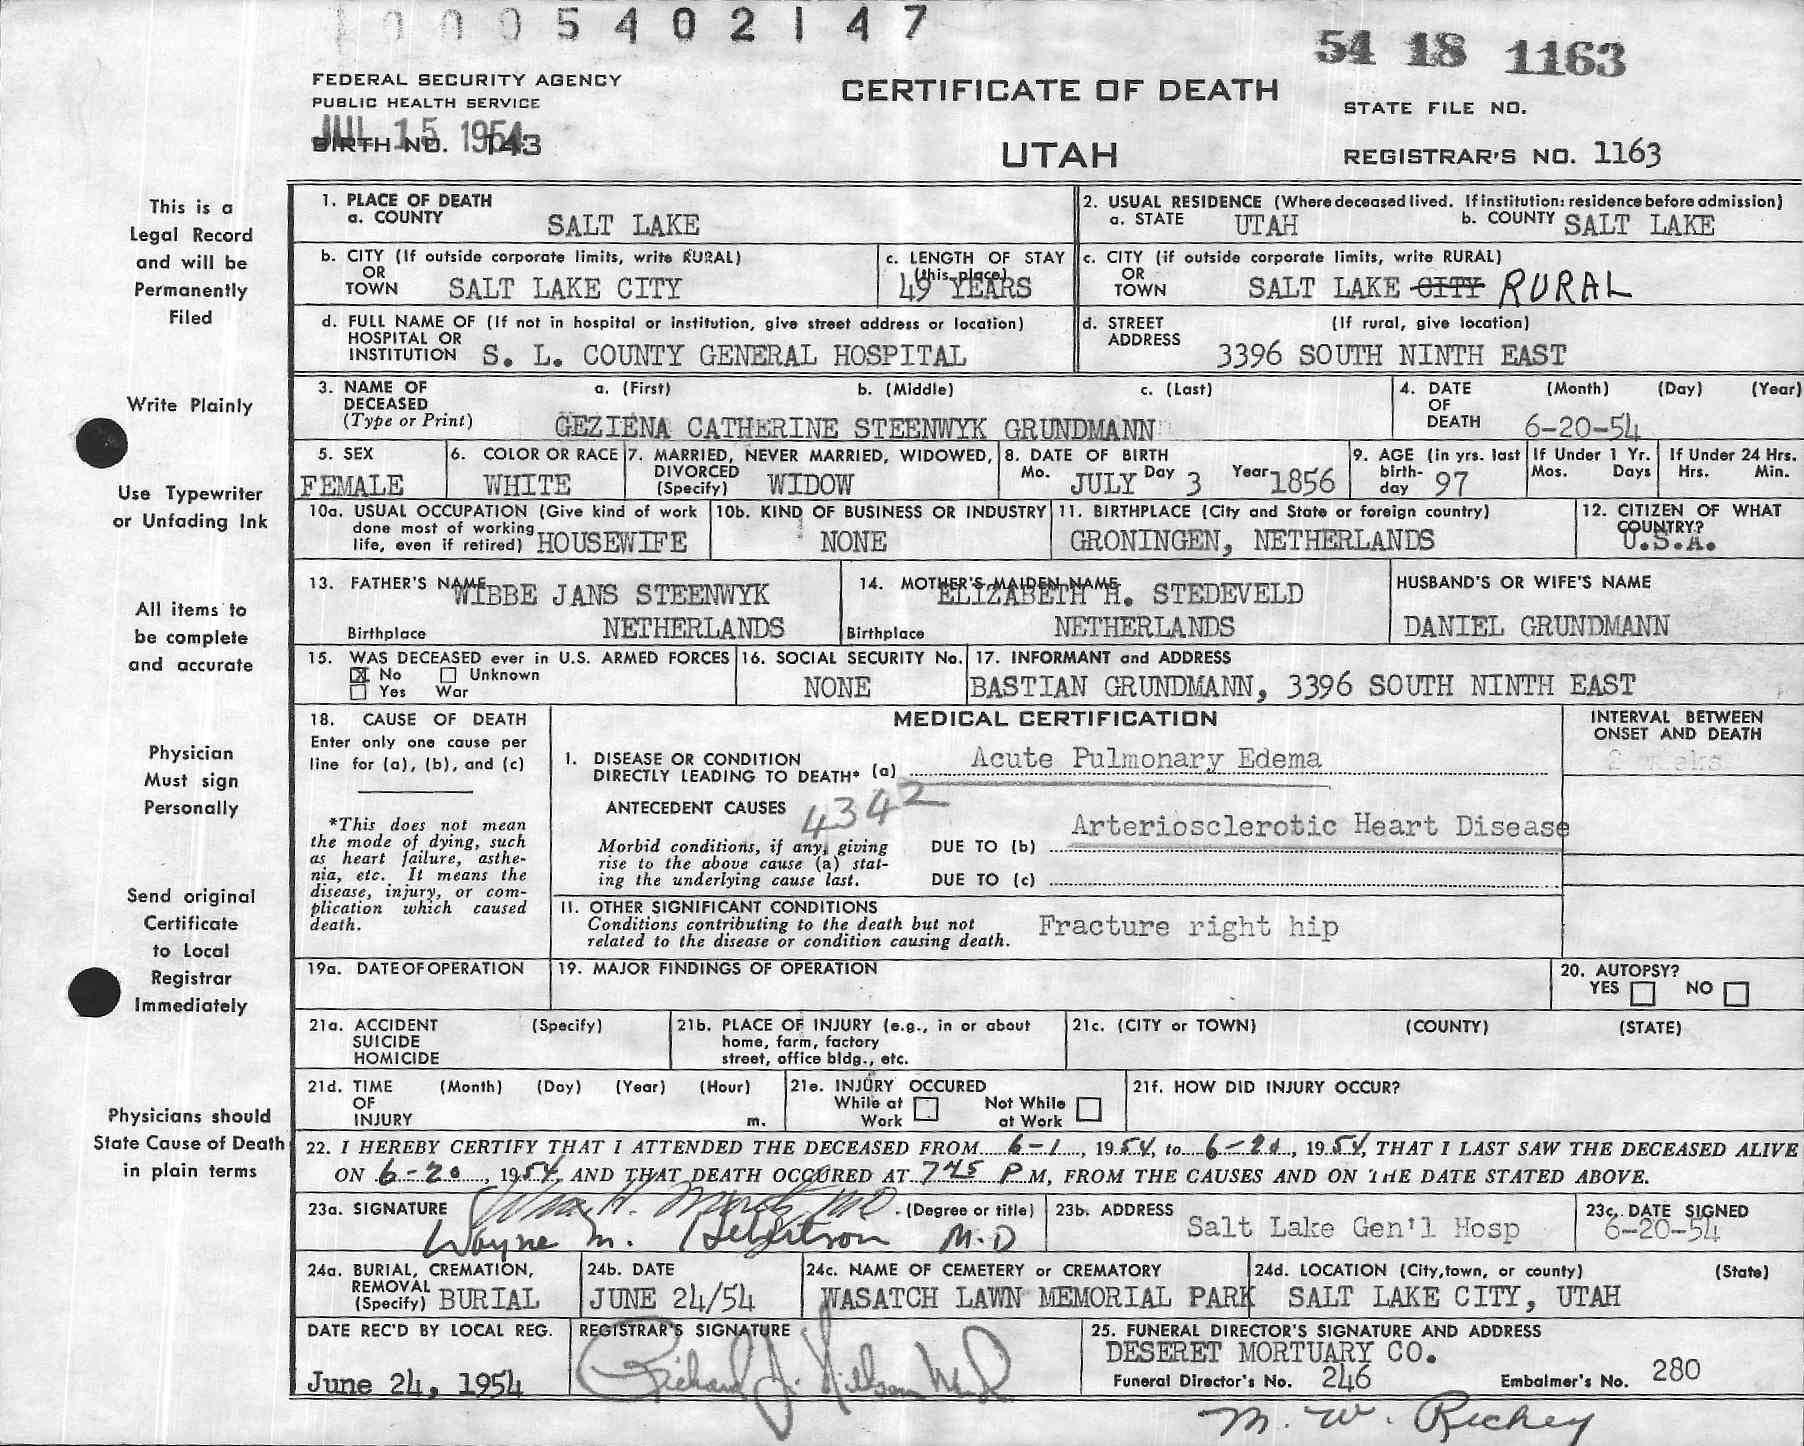 5402147
54 18 1163
FEDERAL SECURITY AGENCY
PUBLIC HEALTH SERVICE
CERTIFICATE OF DEATH
STATE FILE NO.
JUL 15 1954
BIRTH NO. 143
UTAH
REGISTRAR'S NO. 1163
This is a
Legal Record
and will be
Permanently
Filed
Write Plainly
Use Typewriter
or Unfading Ink
All items to
be complete
and accurate
Physician
Must sign
Personally
Send original
Certificate
to Local
Registrar
Immediately
Physicians should
State Cause of Death
in plain terms
1. PLACE OF DEATH
a. COUNTY SALT LAKE
2. USUAL RESIDENCE (Where deceased lived. If institution: residence before admission)
a. STATE UTAH b. COUNTY SALT LAKE
b. CITY (If outside corporate limits, write RURAL)
OR
TOWN SALT LAKE CITY
c. LENGTH OF STAY
(this place)
49 YEARS
c. CITY (if outside corporate limits, write RURAL)
OR
TOWN SALT LAKE CITY RURAL
d. FULL NAME OF (If not in hospital or institution, give street address or location)
HOSPITAL OR
INSTITUTION S. L. COUNTY GENERAL HOSPITAL
d. STREET (If rural, give location)
ADDRESS
3396 SOUTH NINTH EAST
3. NAME OF a. (First) b. (Middle) c. (Last)
DECEASED
(Type or Print) GEZIENA CATHERINE STEENWYK GRUNDMANN
4. DATE (Month) (Day) (Year)
OF
DEATH 6-20-54
5. SEX
FEMALE
6. COLOR OR RACE
WHITE
7. MARRIED, NEVER MARRIED, WIDOWED,
DIVORCED
(Specify) WIDOW
8. DATE OF BIRTH
Mo. JULY Day 3 Year 1856
9. AGE (in yrs. last
birth-
day 97
If Under 1 Yr.
Mos. Days
If Under 24 Hrs.
Hrs. Min.
10a. USUAL OCCUPATION (Give kind of work
done most of working
life, even if retired) HOUSEWIFE
10b. KIND OF BUSINESS OR INDUSTRY
NONE
11. BIRTHPLACE (City and State or foreign country)
GRONINGEN, NETHERLANDS
12. CITIZEN OF WHAT
COUNTRY?
U.S.A.
13. FATHER'S NAME
WIBBE JANS STEENWYK
Birthplace NETHERLANDS
14. MOTHER'S MAIDEN NAME
ELIZABETH H. STEDEVELD
Birthplace NETHERLANDS
HUSBAND'S OR WIFE'S NAME
DANIEL GRUNDMANN
15. WAS DECEASED ever in U.S. ARMED FORCES
X No Unknown
Yes War
16. SOCIAL SECURITY No.
NONE
17. INFORMANT and ADDRESS
BASTIAN GRUNDMANN, 3396 SOUTH NINTH EAST
18. CAUSE OF DEATH
Enter only one cause per
line for (a), (b), and (c)
*This does not mean
the mode of dying, such
as heart failure, asthe-
nia, etc. It means the
disease, injury, or com-
plication which caused
death.
MEDICAL CERTIFICATION
INTERVAL BETWEEN
ONSET AND DEATH
I. DISEASE OR CONDITION
DIRECTLY LEADING TO DEATH* (a) Acute Pulmonary Edema
2 weeks
ANTECEDENT CAUSES 4342
Morbid conditions, if any, giving
rise to the above cause (a) stat-
ing the underlying cause last.
DUE TO (b) Arteriosclerotic Heart Disease
DUE TO (c)
II. OTHER SIGNIFICANT CONDITIONS
Conditions contributing to the death but not
related to the disease or condition causing death.
Fracture right hip
19a. DATE OF OPERATION
19. MAJOR FINDINGS OF OPERATION
20. AUTOPSY?
YES NO
21a. ACCIDENT (Specify)
SUICIDE
HOMICIDE
21b. PLACE OF INJURY (e.g., in or about
home, farm, factory
street, office bldg., etc.
21c. (CITY or TOWN) (COUNTY) (STATE)
21d. TIME (Month) (Day) (Year) (Hour)
OF
INJURY m.
21e. INJURY OCCURED
While at Work
Not While at Work
21f. HOW DID INJURY OCCUR?
22. I HEREBY CERTIFY THAT I ATTENDED THE DECEASED FROM 6-1, 1954, to 6-20, 1954, THAT I LAST SAW THE DECEASED ALIVE
ON 6-20, 1954, AND THAT DEATH OCCURED AT 745 P M, FROM THE CAUSES AND ON THE DATE STATED ABOVE.
23a. SIGNATURE (Degree or title)
Wayne M. Hebertson M.D
23b. ADDRESS
Salt Lake Gen'l Hosp
23c. DATE SIGNED
6-20-54
24a. BURIAL, CREMATION,
REMOVAL
(Specify) BURIAL
24b. DATE
JUNE 24/54
24c. NAME OF CEMETERY or CREMATORY
WASATCH LAWN MEMORIAL PARK
24d. LOCATION (City, town, or county) (State)
SALT LAKE CITY, UTAH
DATE REC'D BY LOCAL REG.
June 24, 1954
REGISTRAR'S SIGNATURE
25. FUNERAL DIRECTOR'S SIGNATURE AND ADDRESS
DESERET MORTUARY CO.
Funeral Director's No. 246 Embalmer's No. 280
M. W. Richey